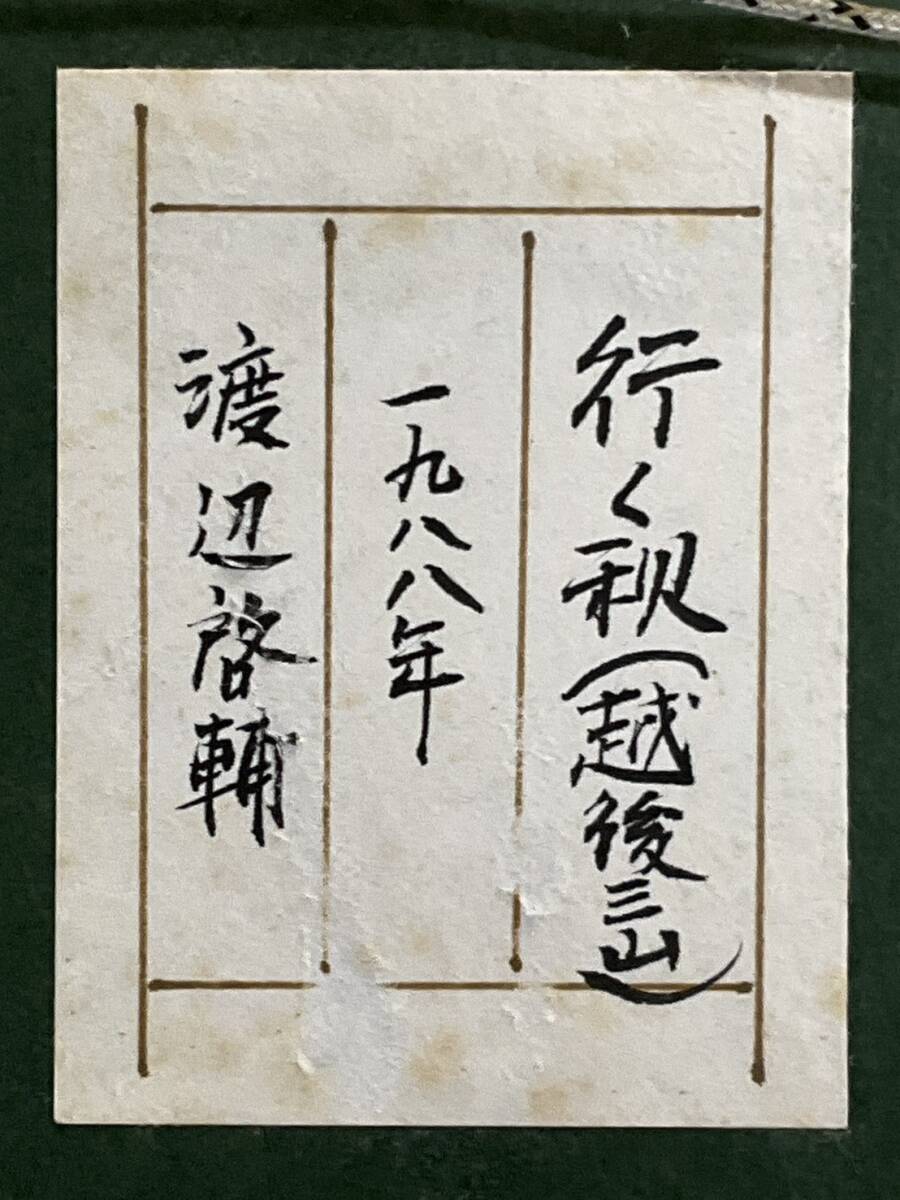 行く秋（越後三山）
一九八八年
渡辺啓輔